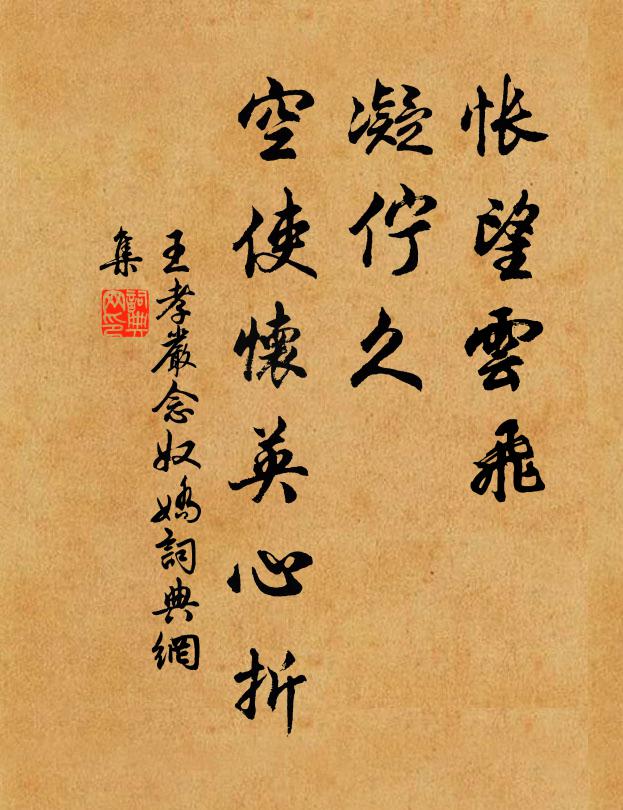 悵望雲飛
凝佇久
空使懷英心折
王孝嚴念奴嬌詞典網
集
詞典網印